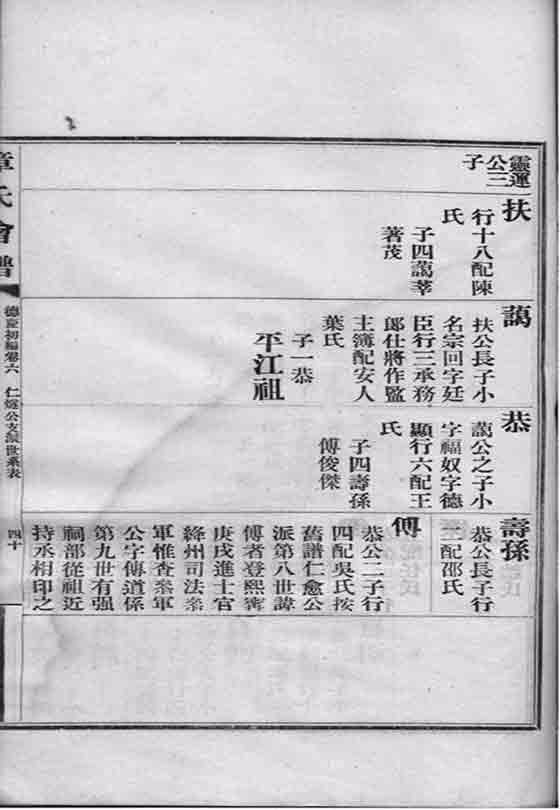 靈運
公三
子
扶
行十八配陳
氏
子四藹莘
著茂
藹
扶公長子小
名宗回字廷
臣行三承務
郎仕將作監
主簿配安人
葉氏
子一恭
平江祖
恭
藹公之子小
字福奴字德
顯行六配王
氏
子四壽孫
傅俊傑
壽孫
恭公長子行
三配邵氏
傅
恭公二子行
四配吳氏按
舊譜仁愈公
派第八世諱
傅者登熙寧
庚戌進士官
絳州司法叅
軍惟查叅軍
公字傳道係
第九世有强
祠部從祖近
持丞相印之
章氏會譜
德慶初編卷六
仁燧公支派世系表
四十